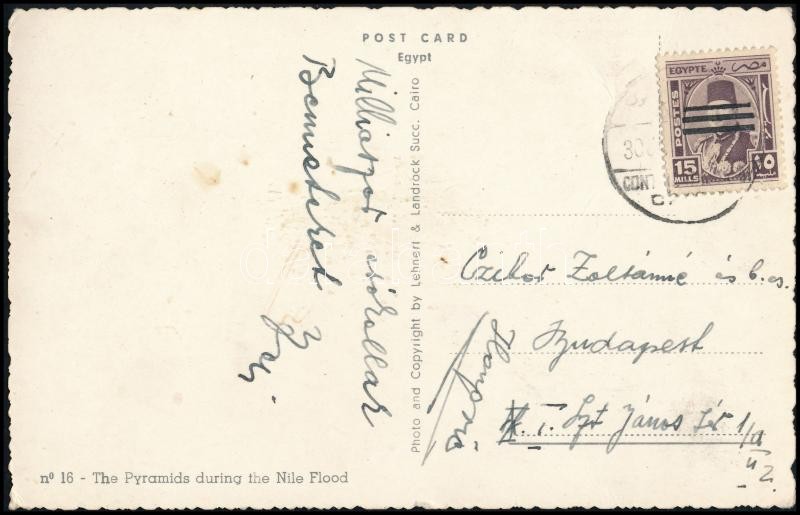 POST CARD
Egypt
EGYPTE
مصر
POSTES
15
MILLS
١٥
30
CONT
Photo and Copyright by Lehnert & Landrock Succ. Cairo
Milliószor csókollak
Benneteket
Czibor Zoltánné és b. cs.
Budapest
I. Szt János tér 1/a
nº 16 - The Pyramids during the Nile Flood